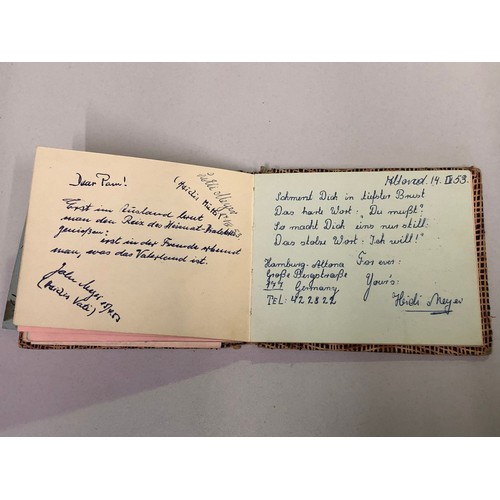 Dear Pam!
(Heidi
Erst im Ausland lernt
man den Reiz des Heimat-Dialektes
genießen;
erst in der Fremde erkennt
man, was das Vaterland ist.
John Meyer
(Heidis Vati)
14. 53.
Schmerzt Dich in tiefster Brust
Das harte Wort: „Du mußt!"
So macht Dich eins nur still:
Das stolze Wort: Ich will!"
Hamburg-Altona For ever:
Große Bergstraße Your's:
Germany Heidi Meyer
TEL: 42 28 22